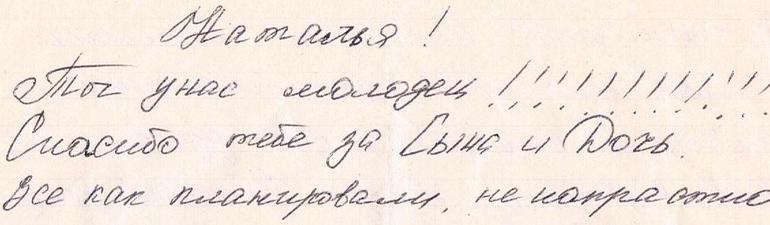 Наталья!
Ты унас молодец!!!!!!!!!!!
Спасибо тебе за Сына и Дочь.
Все как планировали, не напрастно